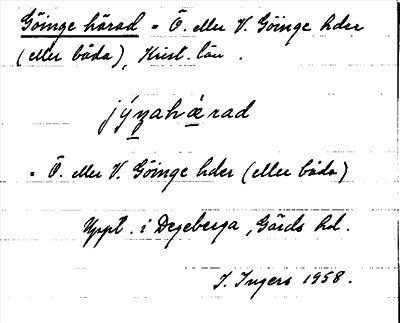 Göinge härad = Ö. eller V. Göinge hder
(eller båda), Krist. län.
jýngahärad
= Ö. eller V. Göinge hder (eller båda)
Uppt. i Degeberga, Gärds hd.
I. Ingers 1958.